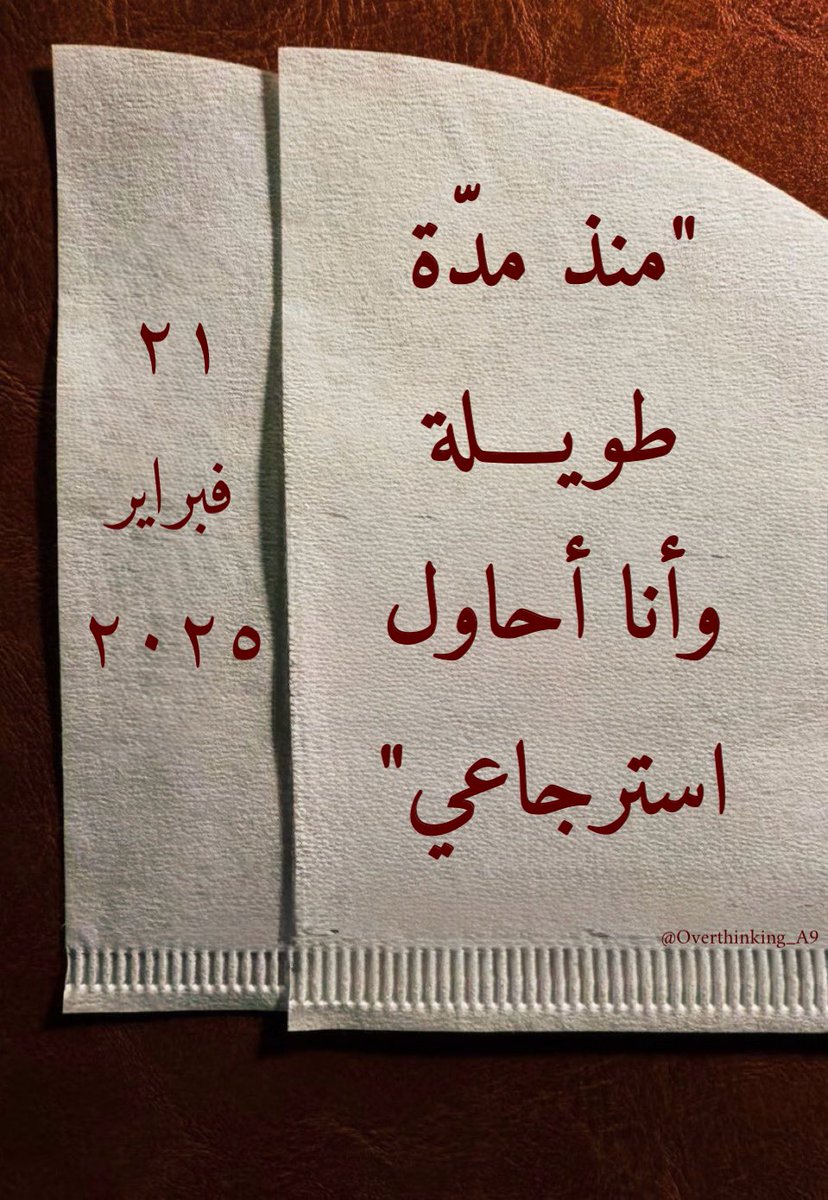 "منذ مدّة
طويـــلة
وأنا أحاول
استرجاعي"
٢١
فبراير
٢٠٢٥
@Overthinking_A9